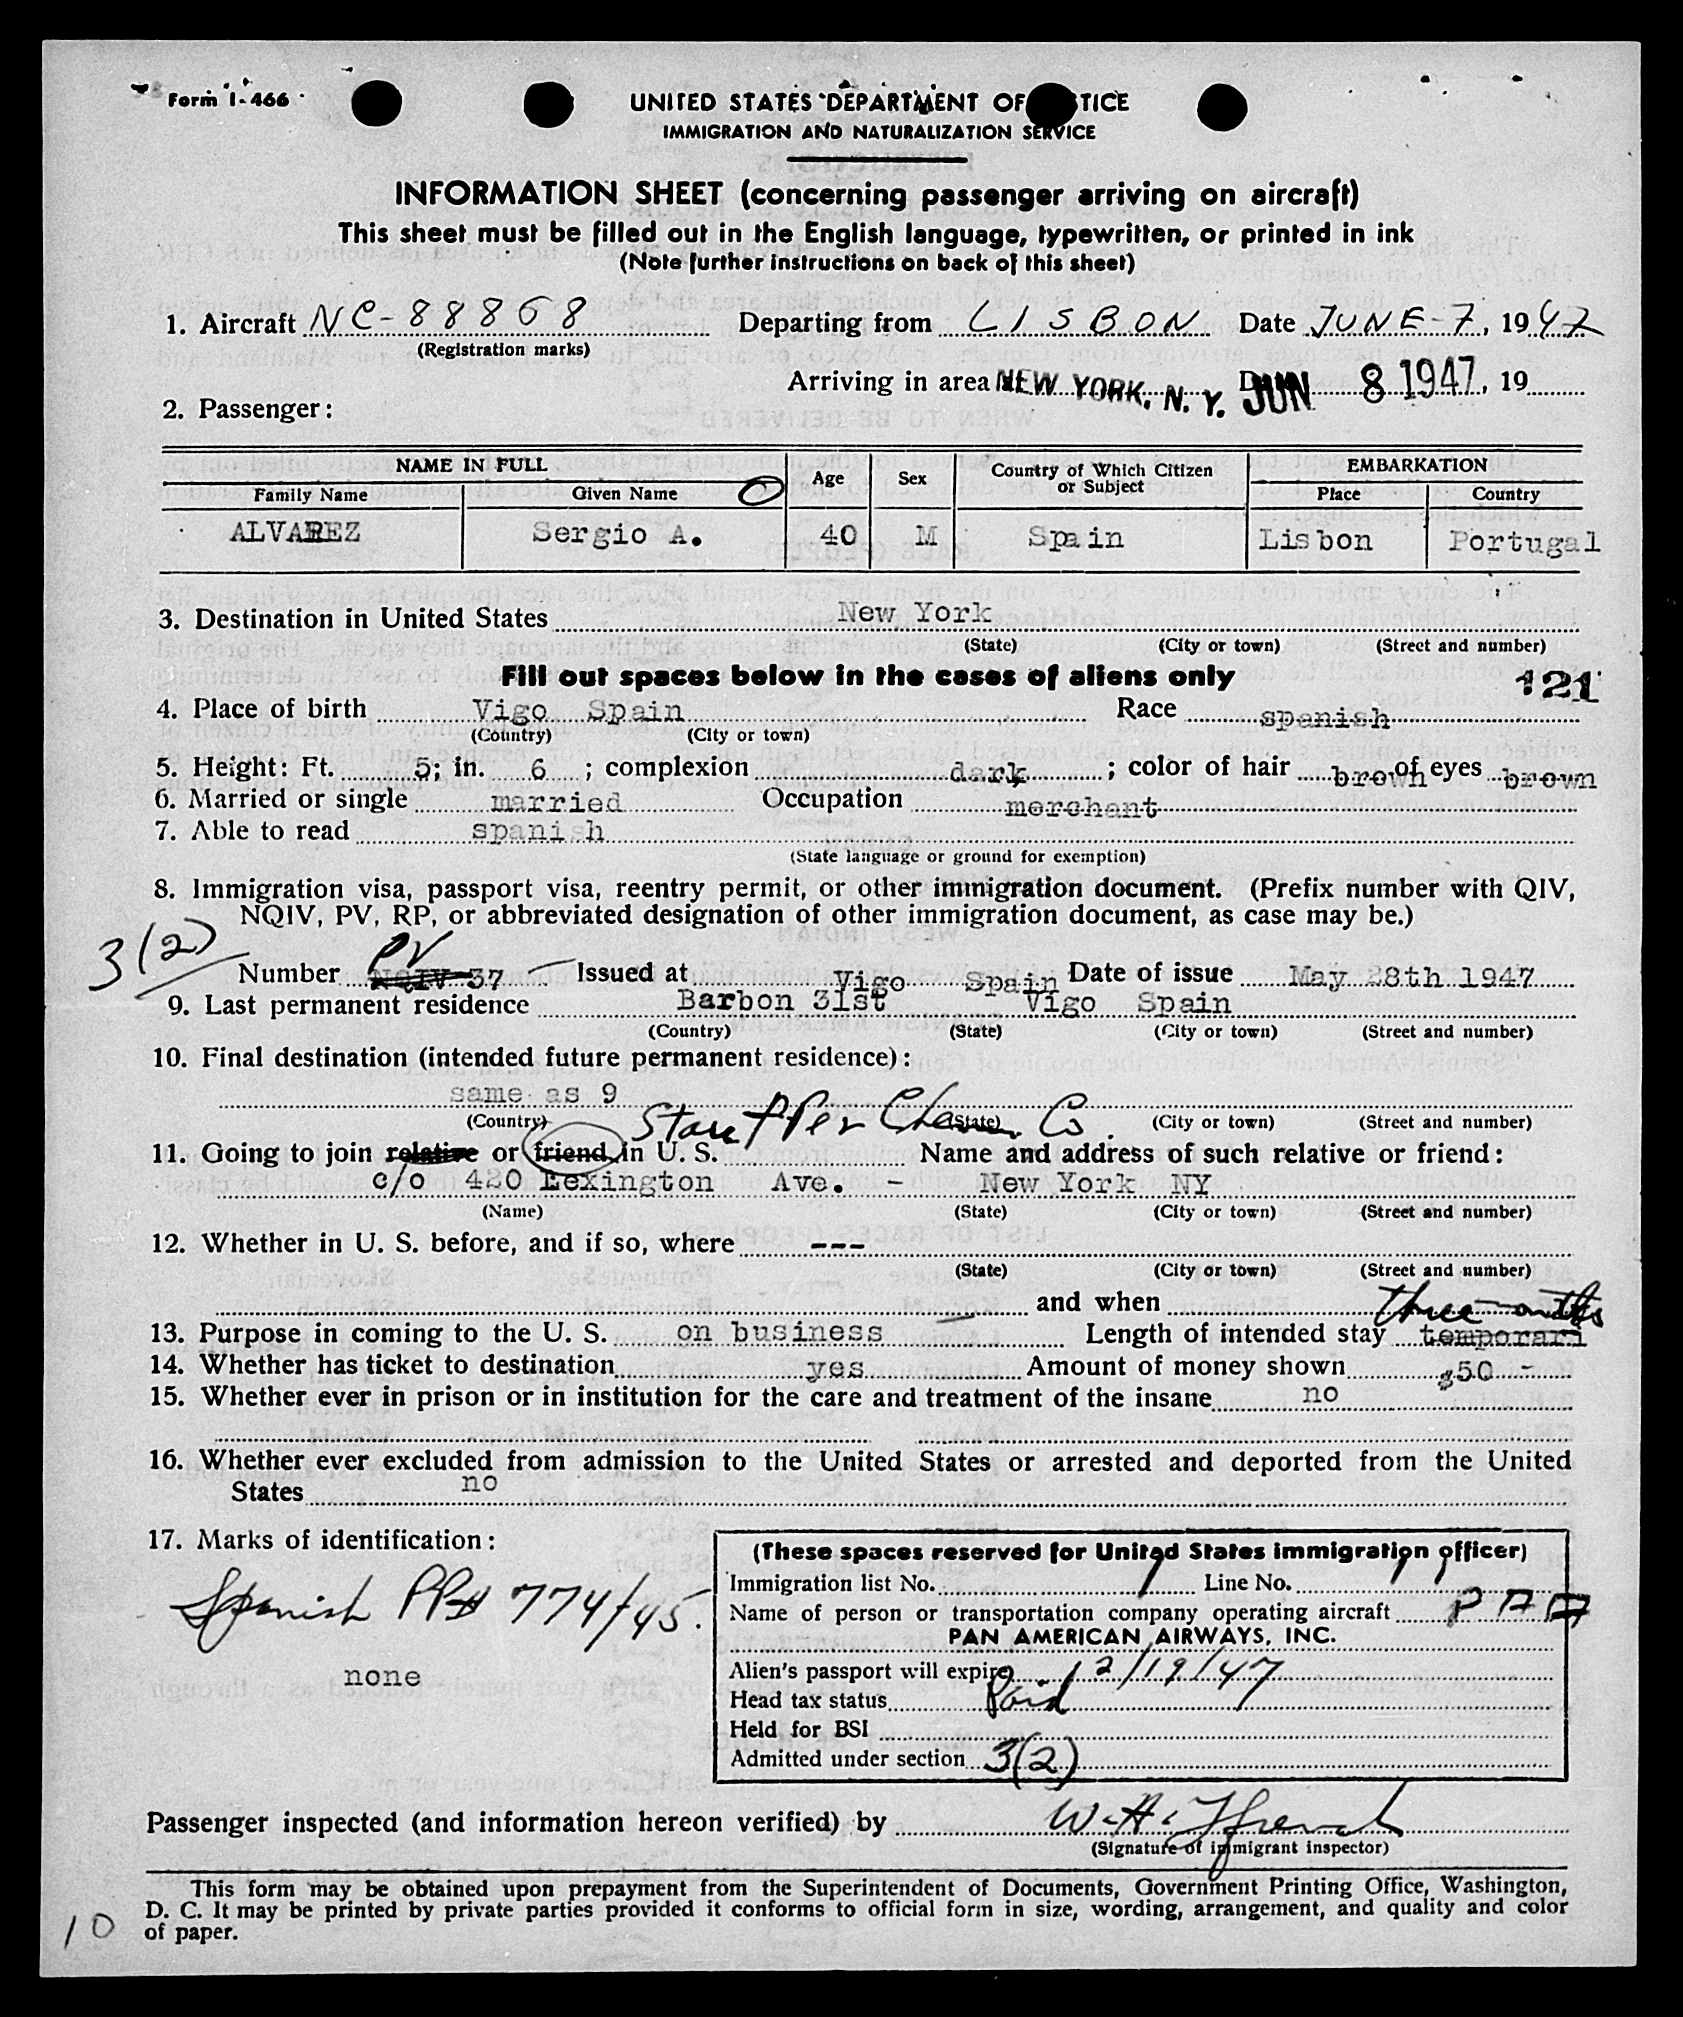 Form I-466
UNITED STATES DEPARTMENT OF TICE
IMMIGRATION AND NATURALIZATION SERVICE
INFORMATION SHEET (concerning passenger arriving on aircraft)
This sheet must be filled out in the English language, typewritten, or printed in ink
(Note further instructions on back of this sheet)
1. Aircraft NC-88868 Departing from LISBON Date JUNE-7, 1947
(Registration marks)
Arriving in area at NEW YORK, N. Y. JUN 8 1947, 19
2. Passenger:
NAME IN FULL Age Sex Country of Which Citizen or Subject EMBARKATION
Family Name Given Name Place Country
ALVAREZ Sergio A. 40 M Spain Lisbon Portugal
3. Destination in United States New York
(State) (City or town) (Street and number)
Fill out spaces below in the cases of aliens only 121
4. Place of birth Vigo Spain Race spanish
(Country) (City or town)
5. Height: Ft. 5; in. 6; complexion dark; color of hair brown of eyes brown
6. Married or single married Occupation merchant
7. Able to read spanish
(State language or ground for exemption)
8. Immigration visa, passport visa, reentry permit, or other immigration document. (Prefix number with QIV,
NQIV, PV, RP, or abbreviated designation of other immigration document, as case may be.)
3(2) PV
Number NQIV 37 Issued at Vigo Spain Date of issue May 28th 1947
9. Last permanent residence Barbon 31st Vigo Spain
(Country) (State) (City or town) (Street and number)
10. Final destination (intended future permanent residence):
same as 9
(Country) (State) (City or town) (Street and number)
Stauffer Chem. Co.
11. Going to join relative or friend in U. S. Name and address of such relative or friend:
c/o 420 Lexington Ave. - New York NY
(Name) (State) (City or town) (Street and number)
12. Whether in U. S. before, and if so, where ---
(State) (City or town) (Street and number)
and when
three months
13. Purpose in coming to the U. S. on business Length of intended stay temporari
14. Whether has ticket to destination yes Amount of money shown $50 -
15. Whether ever in prison or in institution for the care and treatment of the insane no
16. Whether ever excluded from admission to the United States or arrested and deported from the United
States no
17. Marks of identification:
Spanish PP# 774/45.
none
(These spaces reserved for United States immigration officer)
Immigration list No. 1 Line No. 11
Name of person or transportation company operating aircraft PAA
PAN AMERICAN AIRWAYS, INC.
Alien's passport will expire 12/19/47
Head tax status Paid
Held for BSI
Admitted under section 3(2)
Passenger inspected (and information hereon verified) by W. H. Ffrench
(Signature of immigrant inspector)
This form may be obtained upon prepayment from the Superintendent of Documents, Government Printing Office, Washington,
D. C. It may be printed by private parties provided it conforms to official form in size, wording, arrangement, and quality and color
of paper.
10